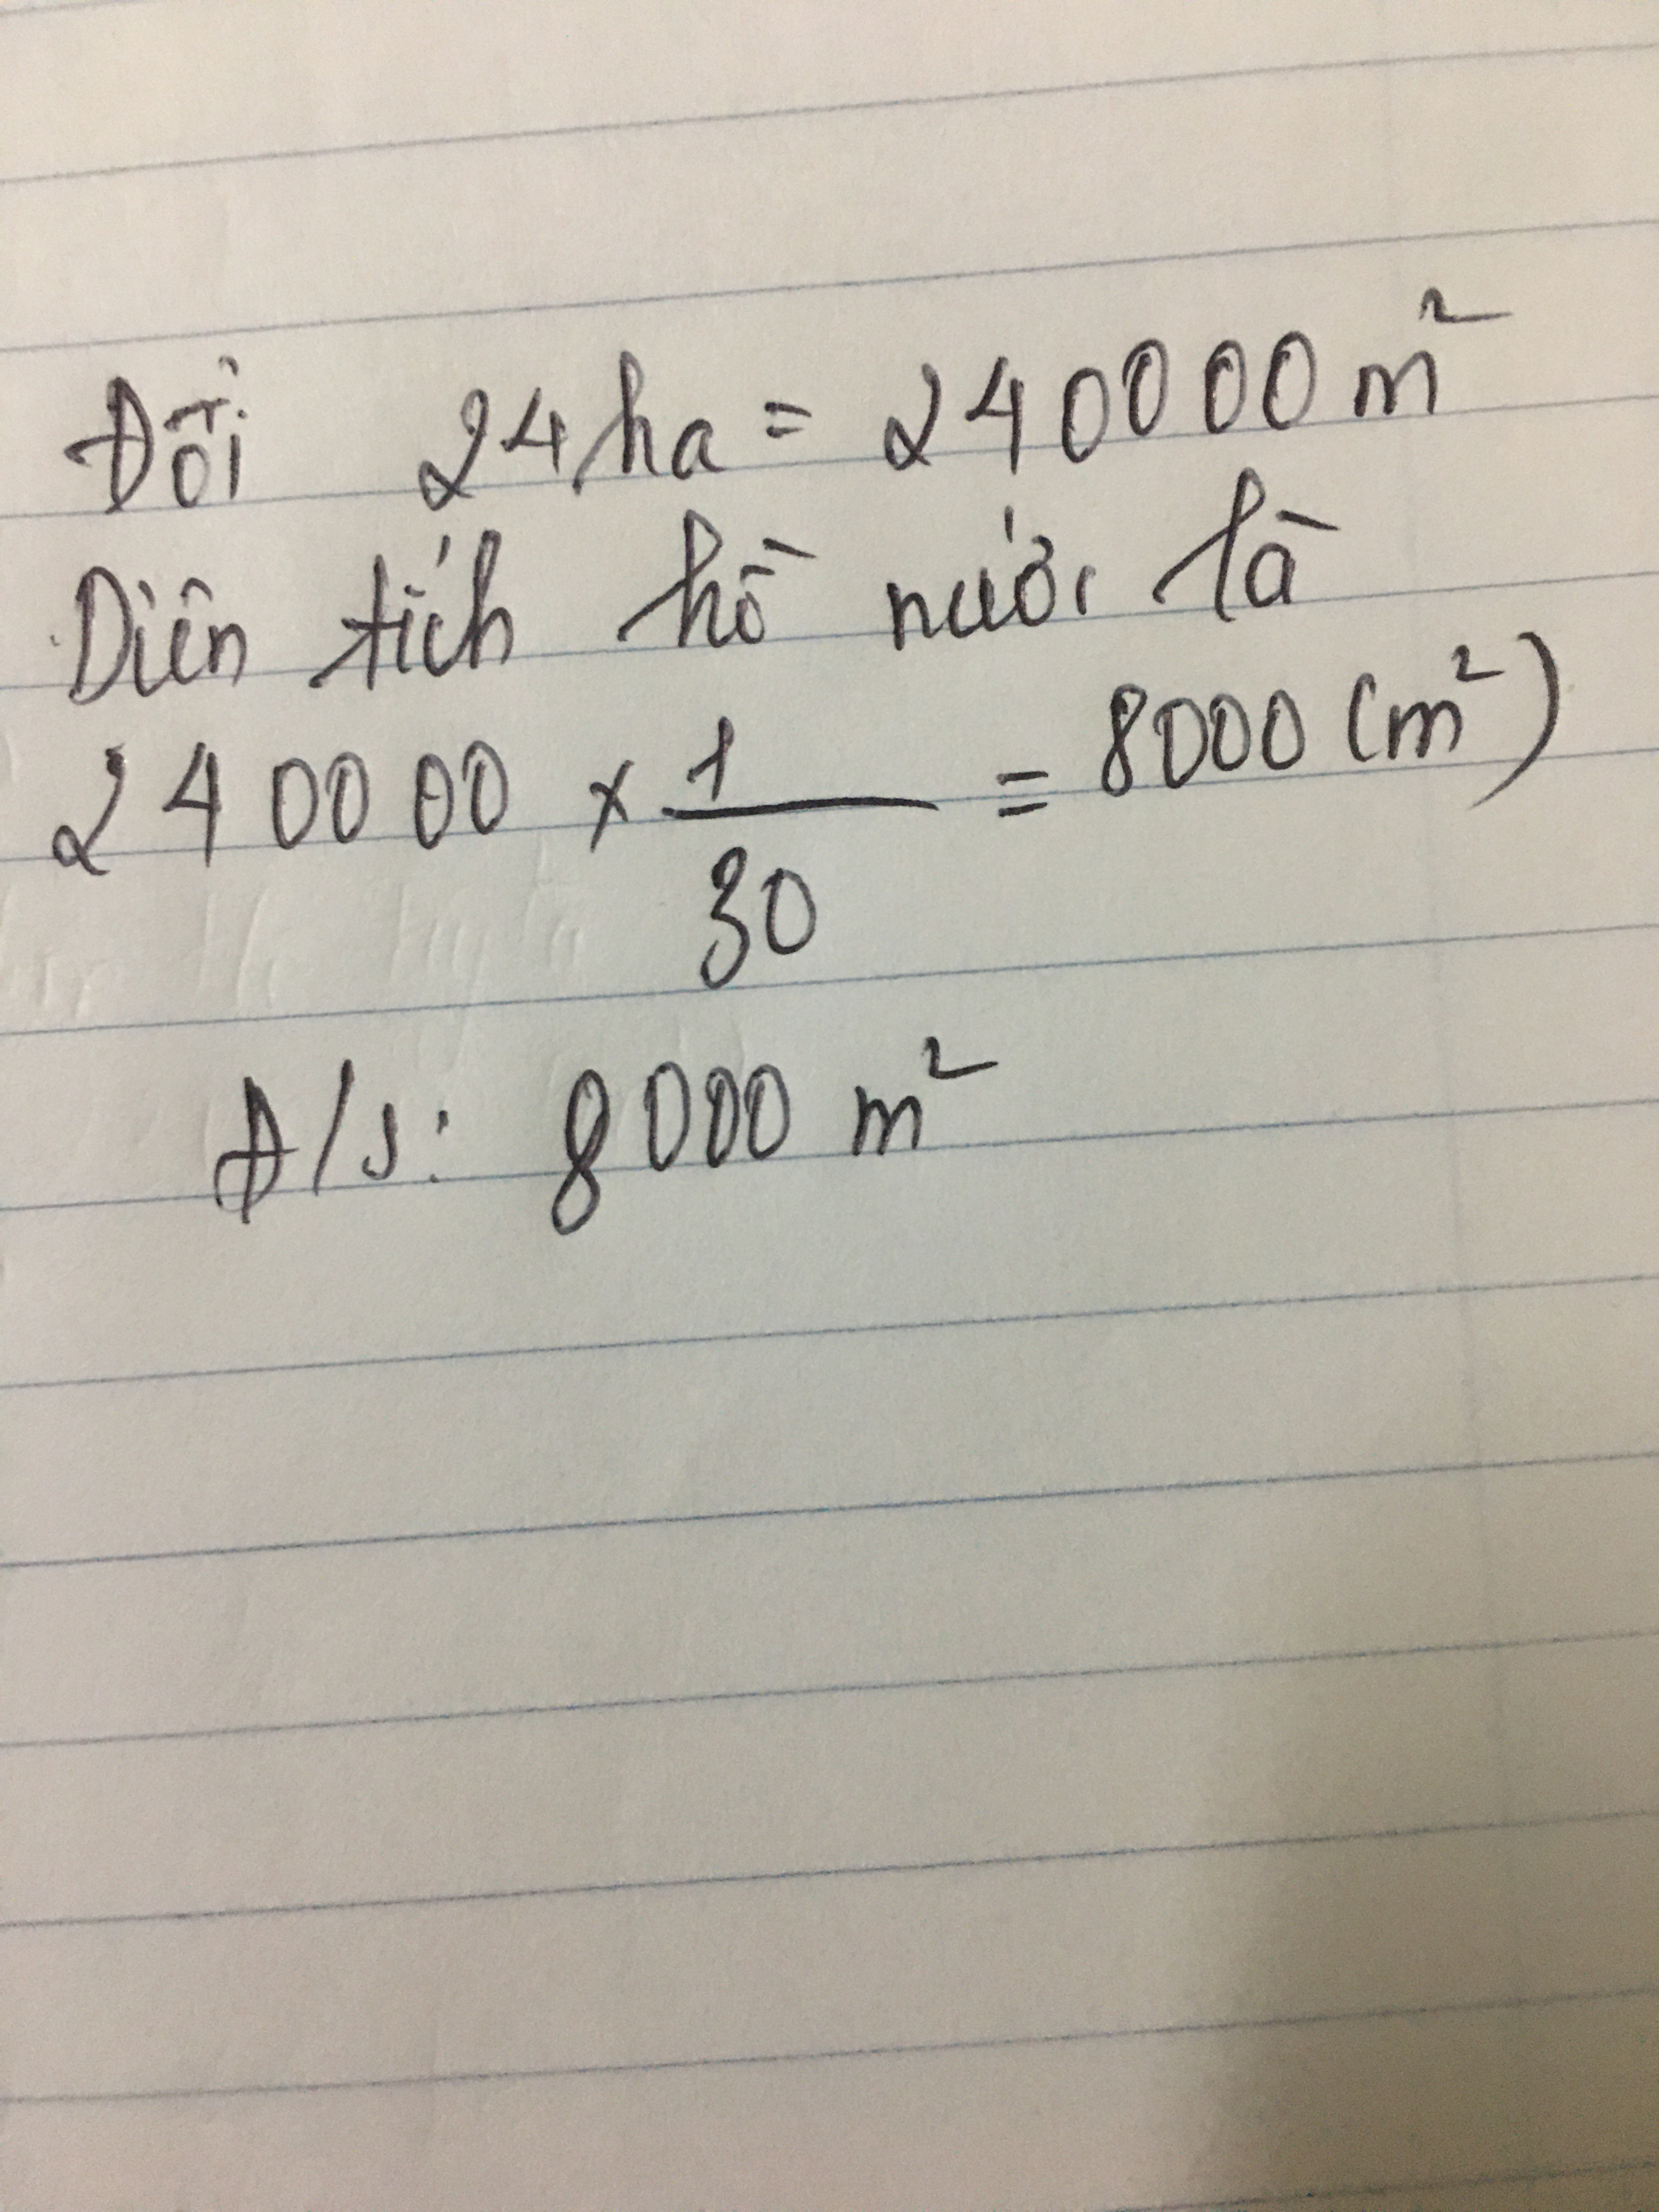 Đổi 24 ha = 240000 m²
Diện tích hồ nước là
240000 x 1/30 = 8000 (m²)
Đ/s: 8000 m²